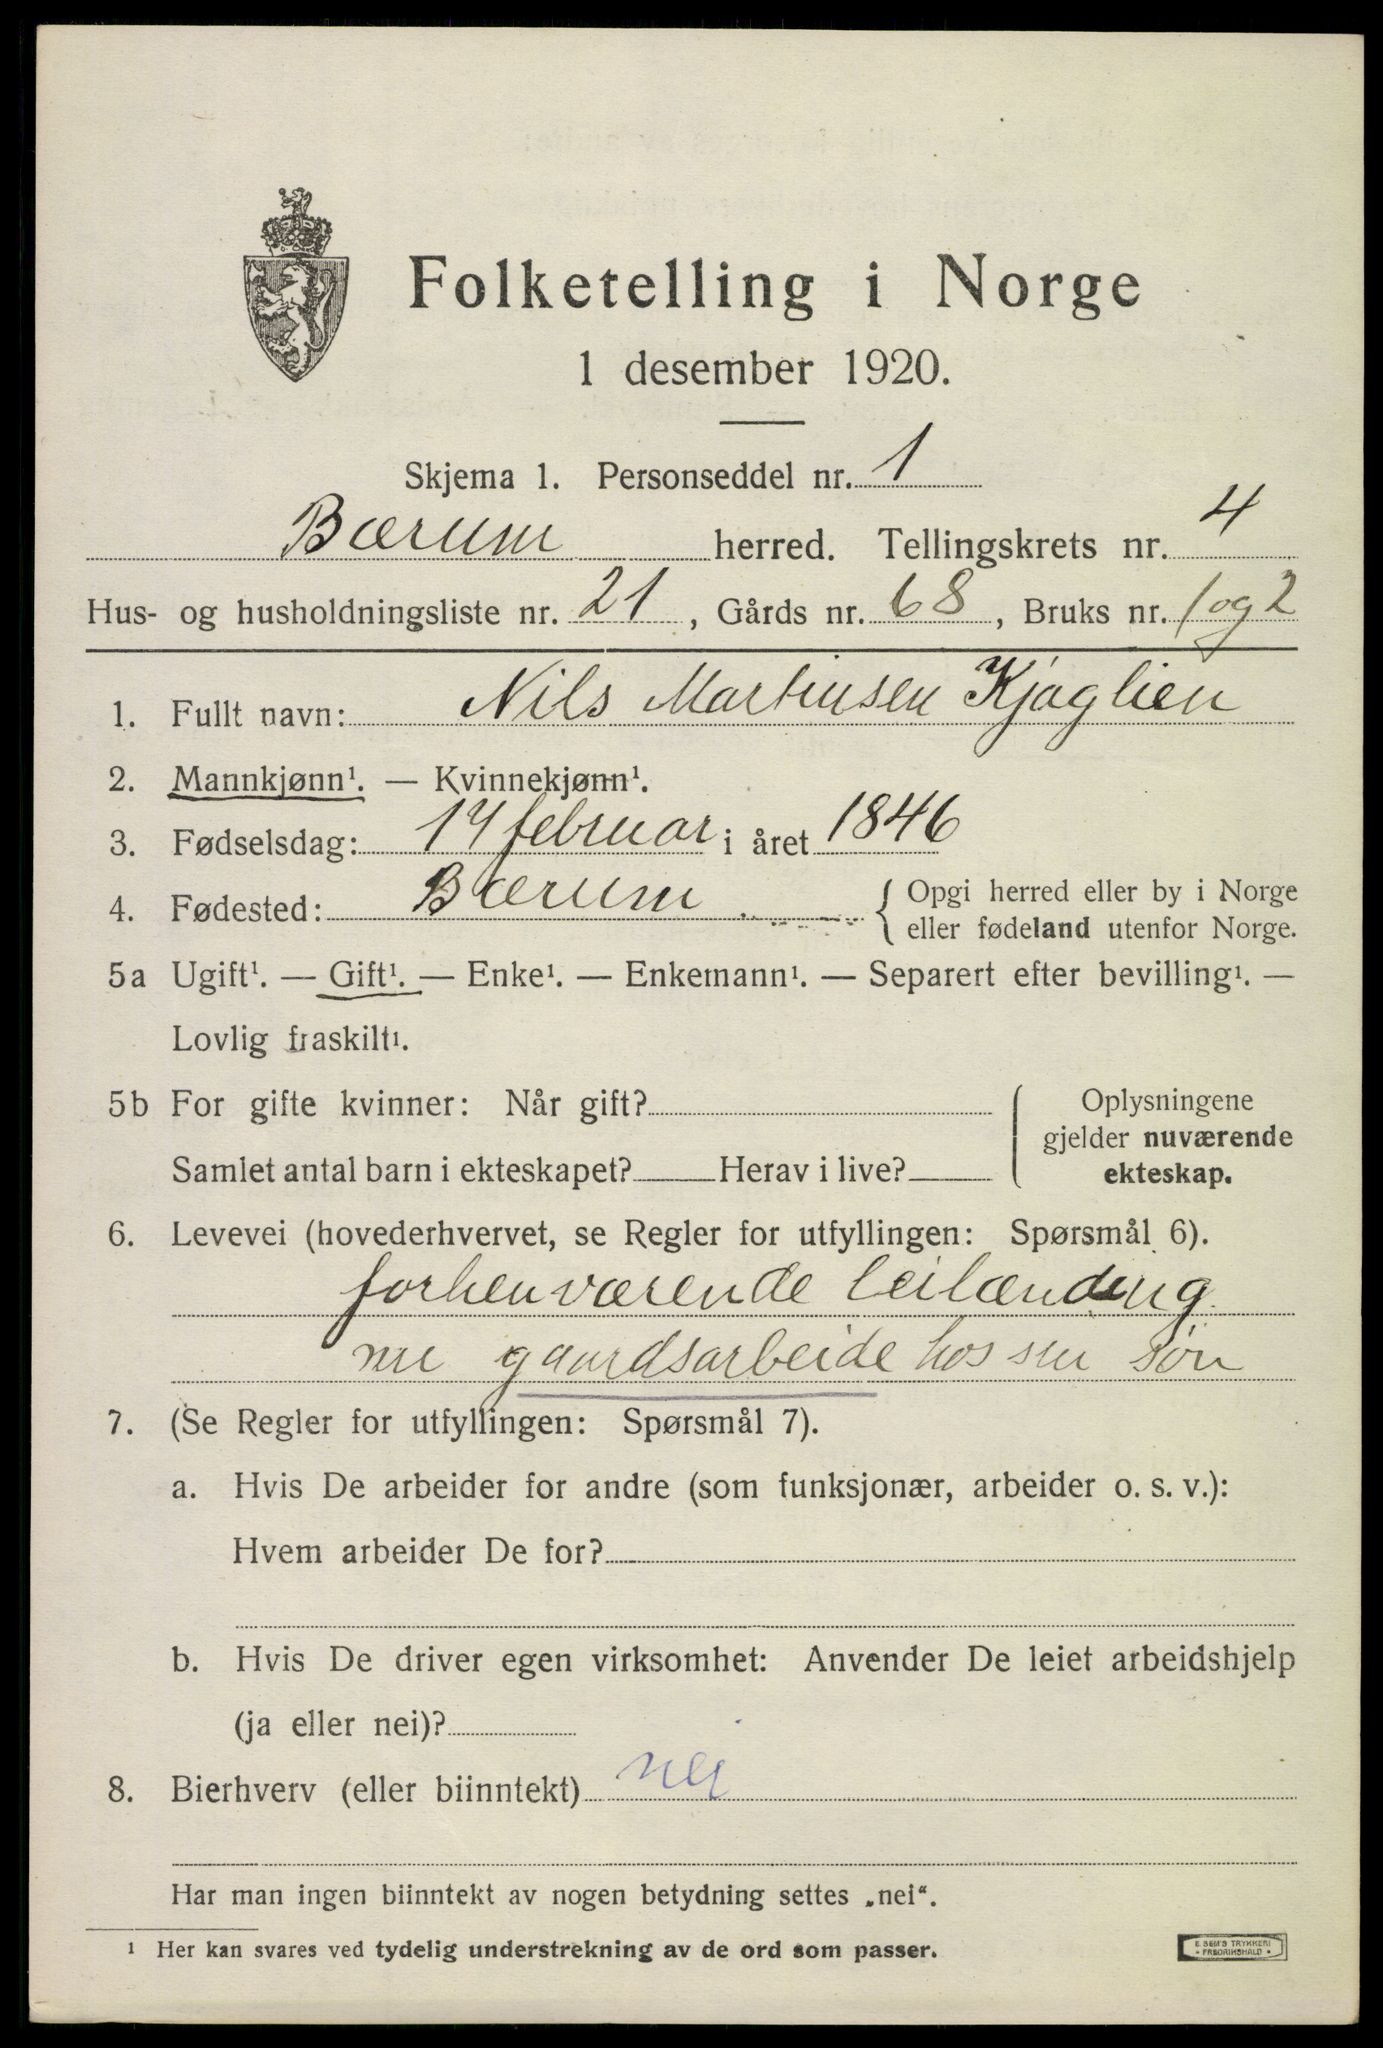 Folketelling i Norge
1 desember 1920.
Skjema 1. Personseddel nr. 1
Bærum herred. Tellingskrets nr. 4
Hus- og husholdningsliste nr. 21, Gårds nr. 68, Bruks nr. 1 og 2
1. Fullt navn: Nils Martinsen Kjaglien
2. Mannkjønn¹. — Kvinnekjønn¹.
3. Fødselsdag: 14 februar i året 1846
4. Fødested: Bærum { Opgi herred eller by i Norge
eller fødeland utenfor Norge.
5a Ugift¹. — Gift¹. — Enke¹. — Enkemann¹. — Separert efter bevilling¹. —
Lovlig fraskilt¹.
5b For gifte kvinner: Når gift? Oplysningene
gjelder nuværende
Samlet antal barn i ekteskapet? Herav i live? ekteskap.
6. Levevei (hovederhvervet, se Regler for utfyllingen: Spørsmål 6).
forhenværende leilænding
nu gaardsarbeide hos sin søn
7. (Se Regler for utfyllingen: Spørsmål 7).
a. Hvis De arbeider for andre (som funksjonær, arbeider o. s. v.):
Hvem arbeider De for?
b. Hvis De driver egen virksomhet: Anvender De leiet arbeidshjelp
(ja eller nei)?
8. Bierhverv (eller biinntekt) nei
Har man ingen biinntekt av nogen betydning settes „nei“.
¹ Her kan svares ved tydelig understrekning av de ord som passer.
E. SEM'S TRYKKERI
• FREDRIKSHALD •